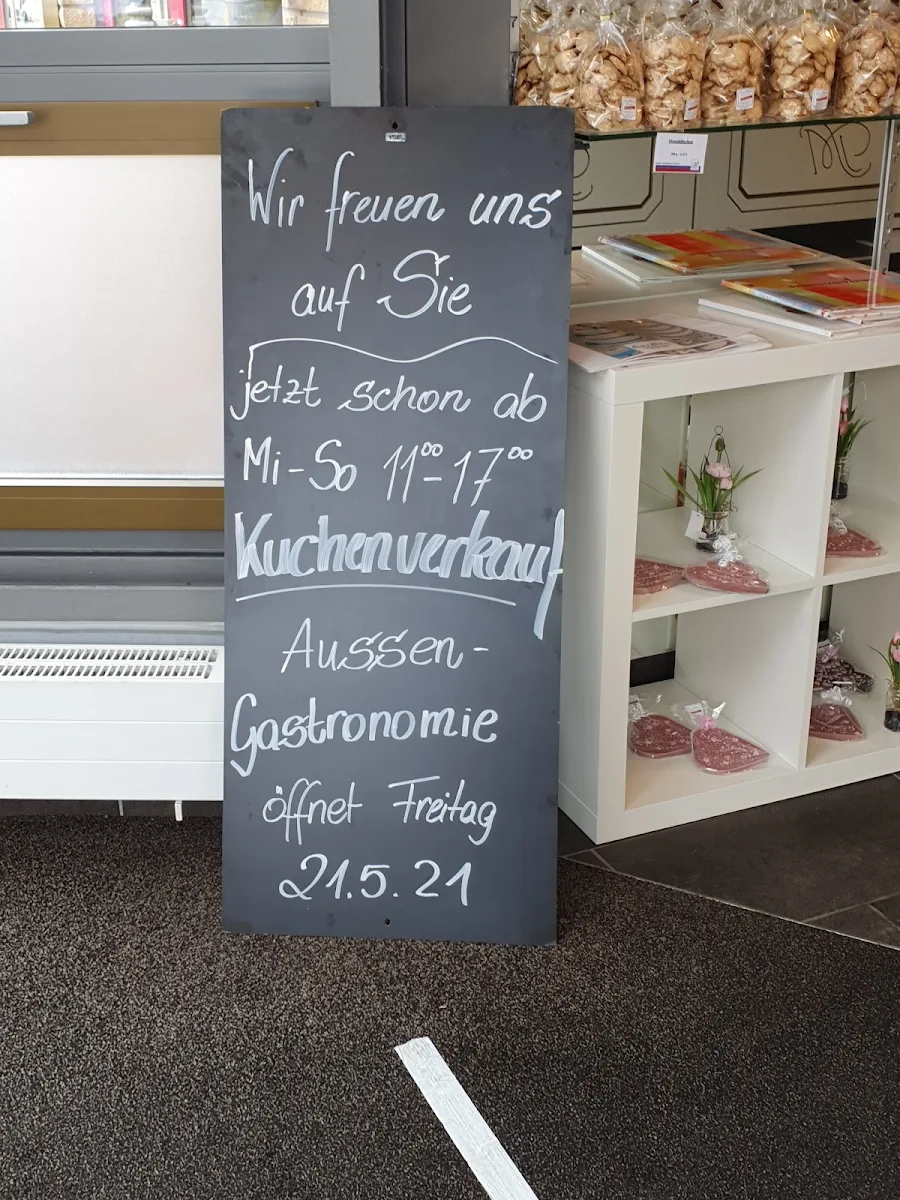 Wir freuen uns
auf Sie
jetzt schon ab
Mi-So 11⁰⁰-17⁰⁰
Kuchenverkauf
Aussen-
Gastronomie
öffnet Freitag
21.5.21